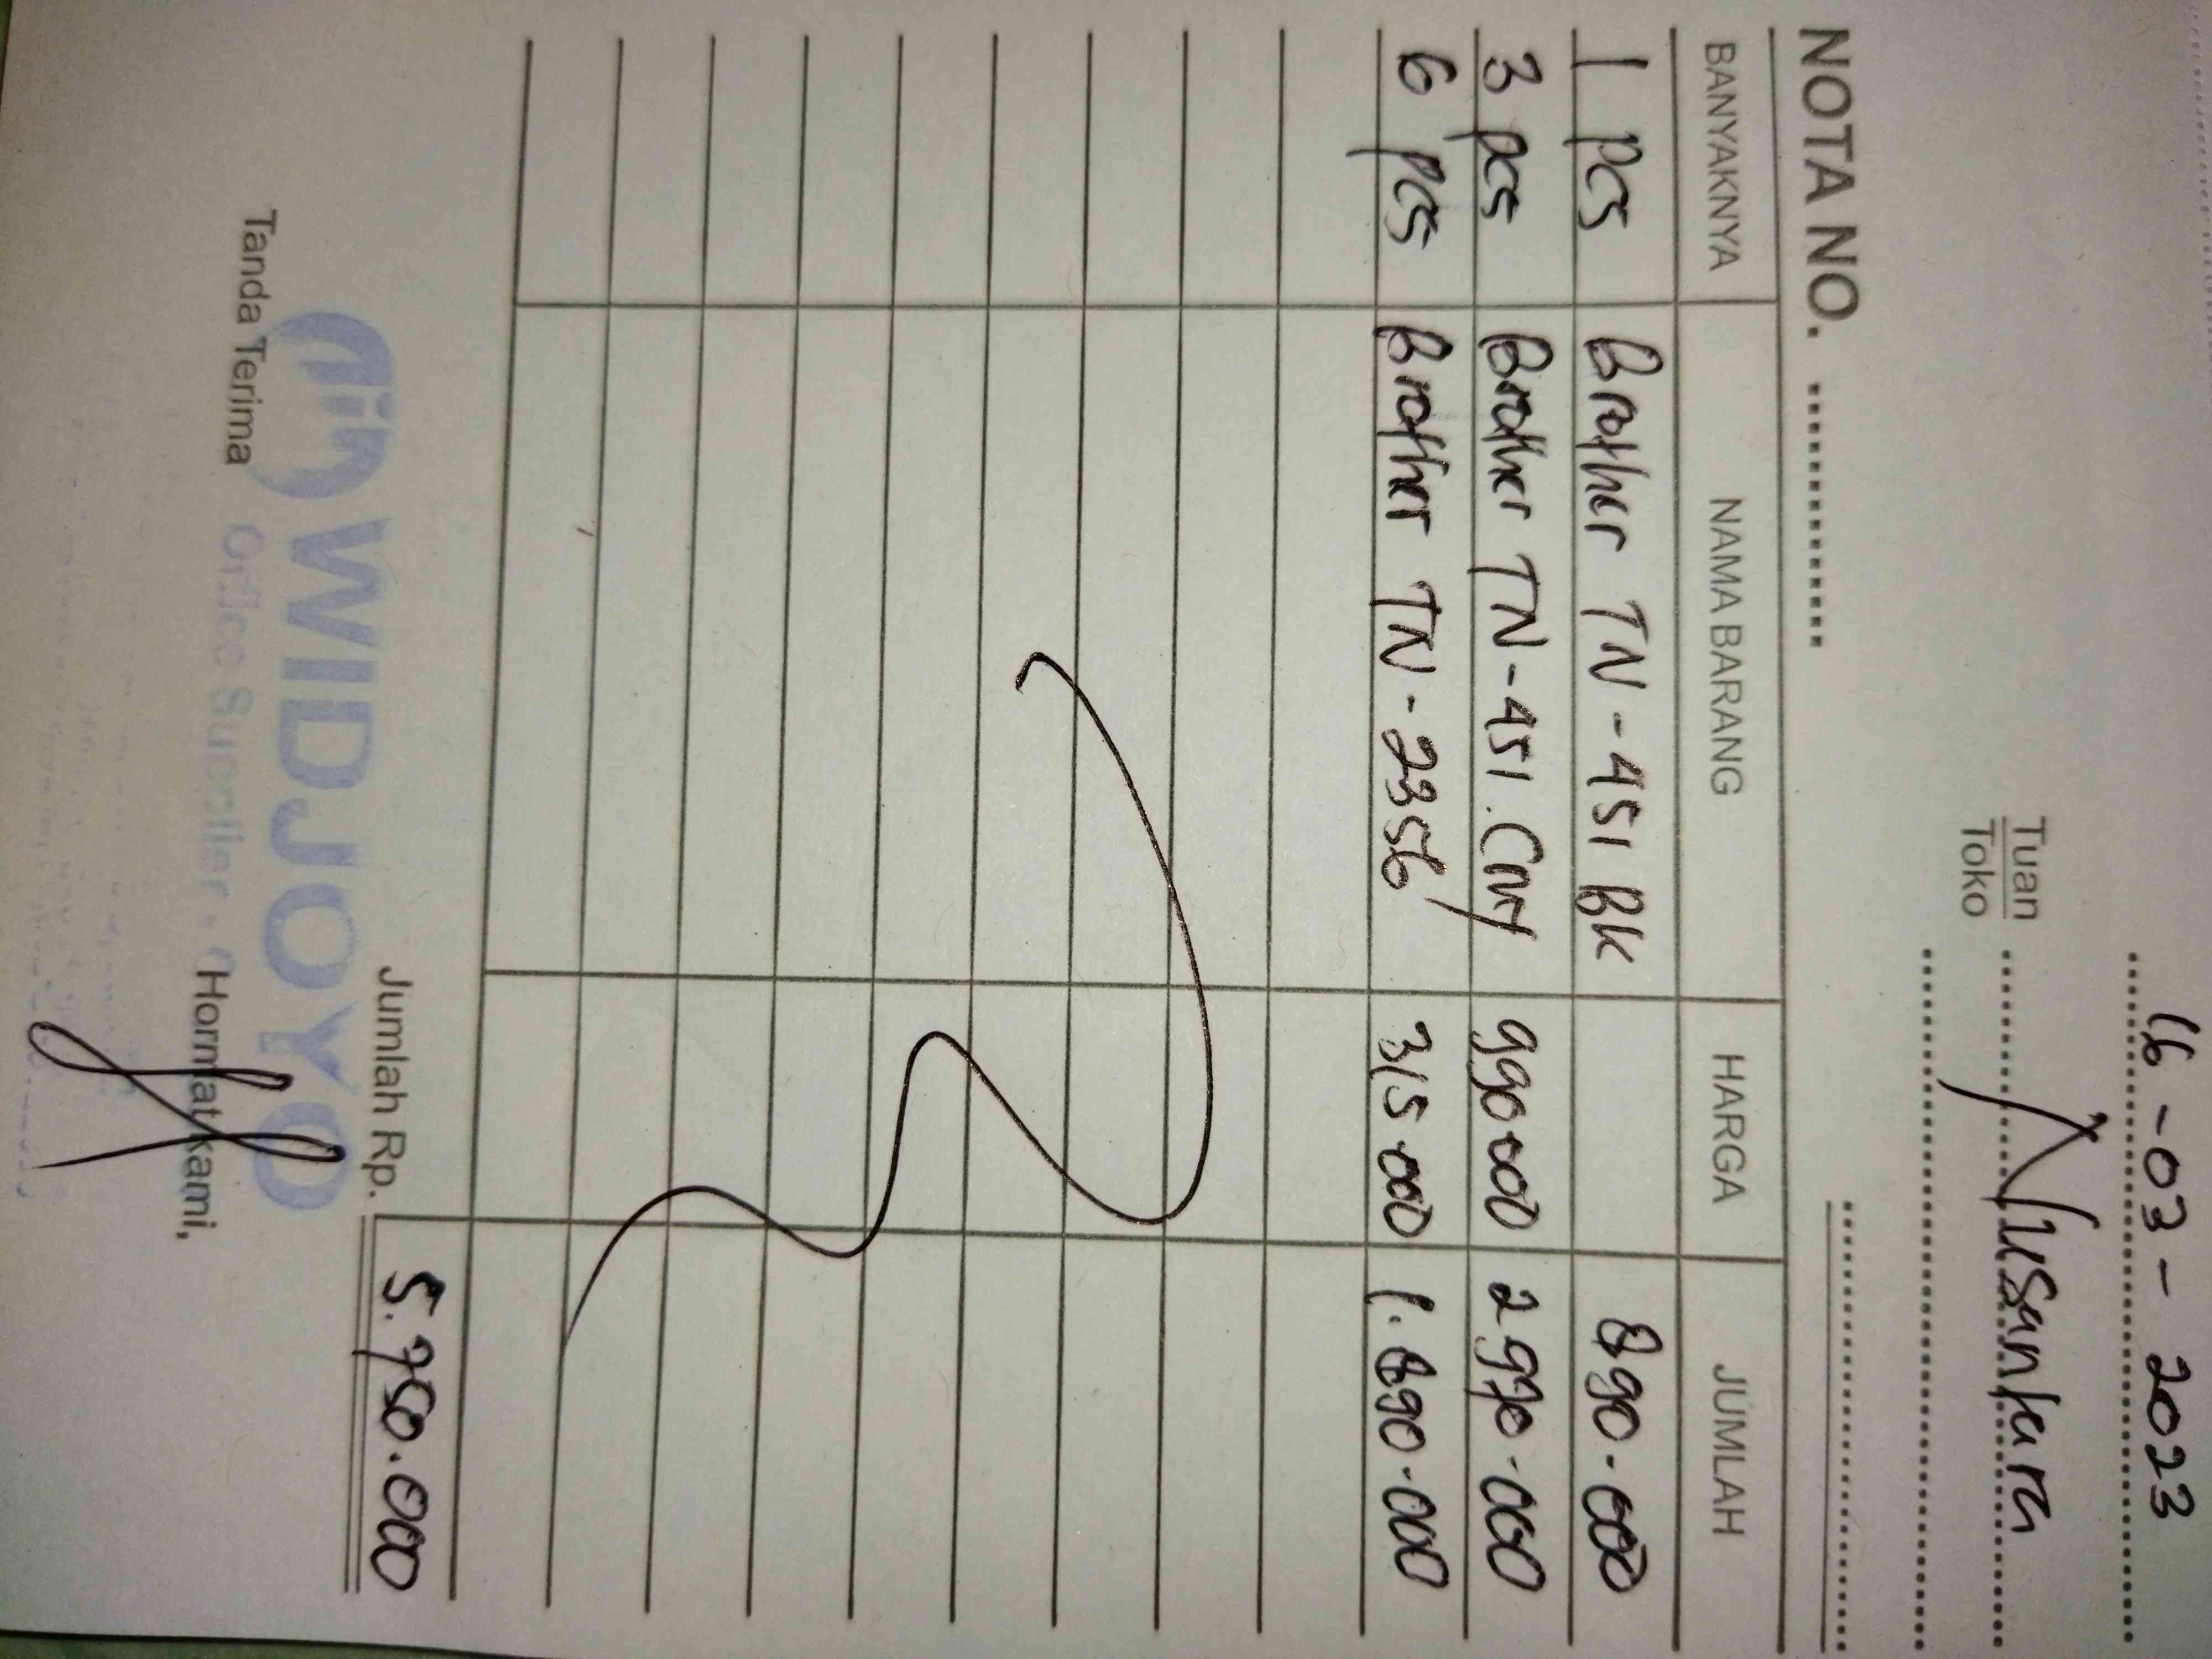 16-03-2023
Tuan
Toko
Nusantara
NOTA NO.
BANYAKNYA NAMA BARANG HARGA JUMLAH
1 pcs Brother TN-451 BK 890.000
3 pcs Brother TN-451.CMY 990.000 2.970.000
6 pcs Brother TN-2356 315.000 1.890.000
Jumlah Rp. 5.750.000
WIDJOYO
Tanda Terima Hormat kami,
Office Supplier